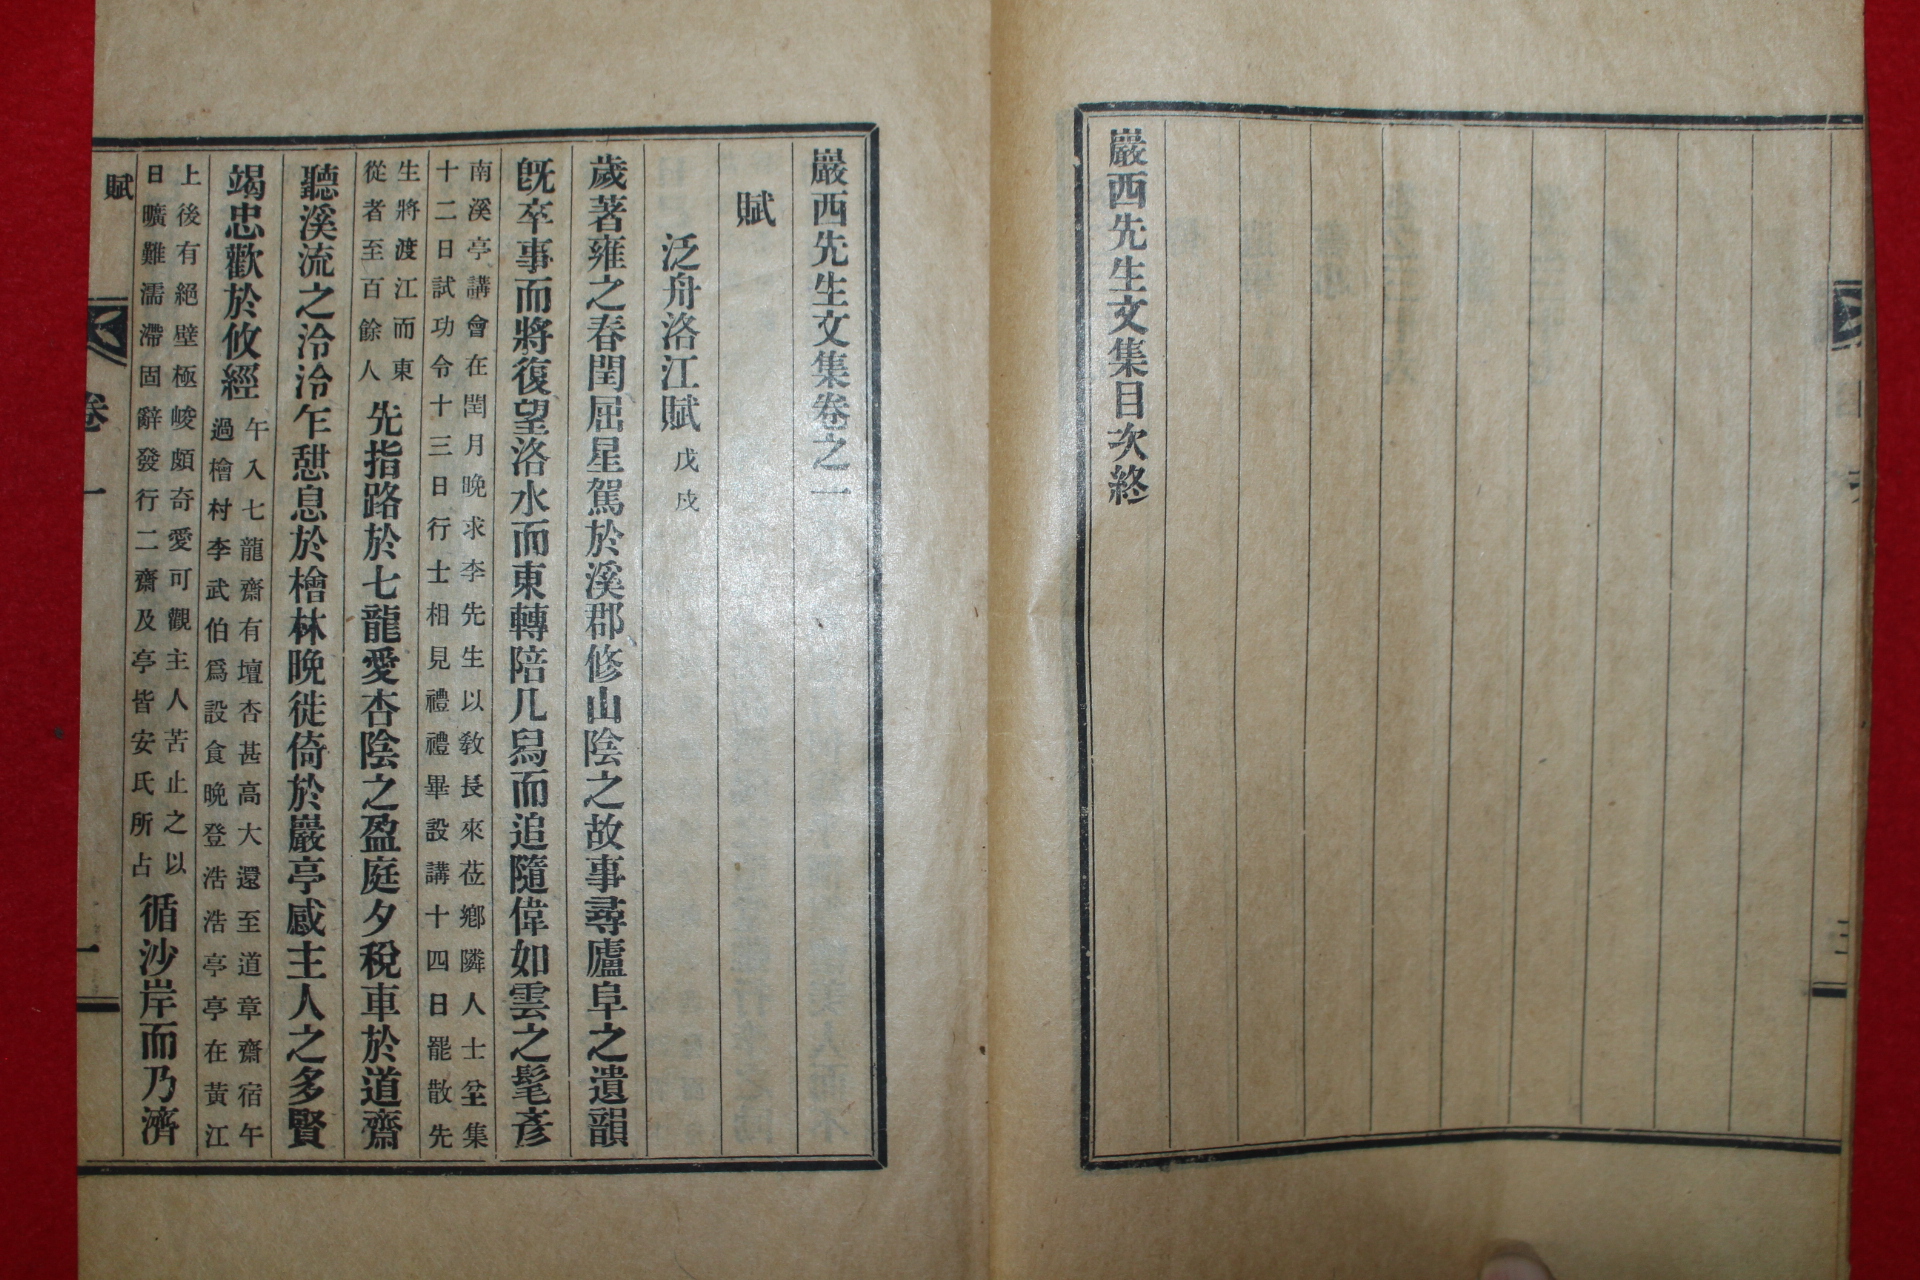 巖西先生文集目次終
巖西先生文集卷之一
賦
泛舟洛江賦 戊戌
歲著雍之春閏屈星駕於溪郡修山陰之故事尋廬阜之遺韻
旣卒事而將復望洛水而東轉陪几舃而追隨偉如雲之髦彦
南溪亭講會在閏月晚求李先生以敎長來莅鄕隣人士坌集
十二日試功令十三日行士相見禮禮畢設講十四日罷散先
生將渡江而東
從者至百餘人
先指路於七龍愛杏陰之盈庭夕稅車於道齋
聽溪流之泠泠乍憇息於檜林晚徙倚於巖亭感主人之多賢
竭忠歡於攸經
午入七龍齋有壇杏甚高大還至道章齋宿午
過檜村李武伯爲設食晚登浩浩亭亭在黃江
上後有絕壁極峻頗奇愛可觀主人苦止之以
日曠難濡滯固辭發行二齋及亭皆安氏所占
循沙岸而乃濟
賦
卷一
一